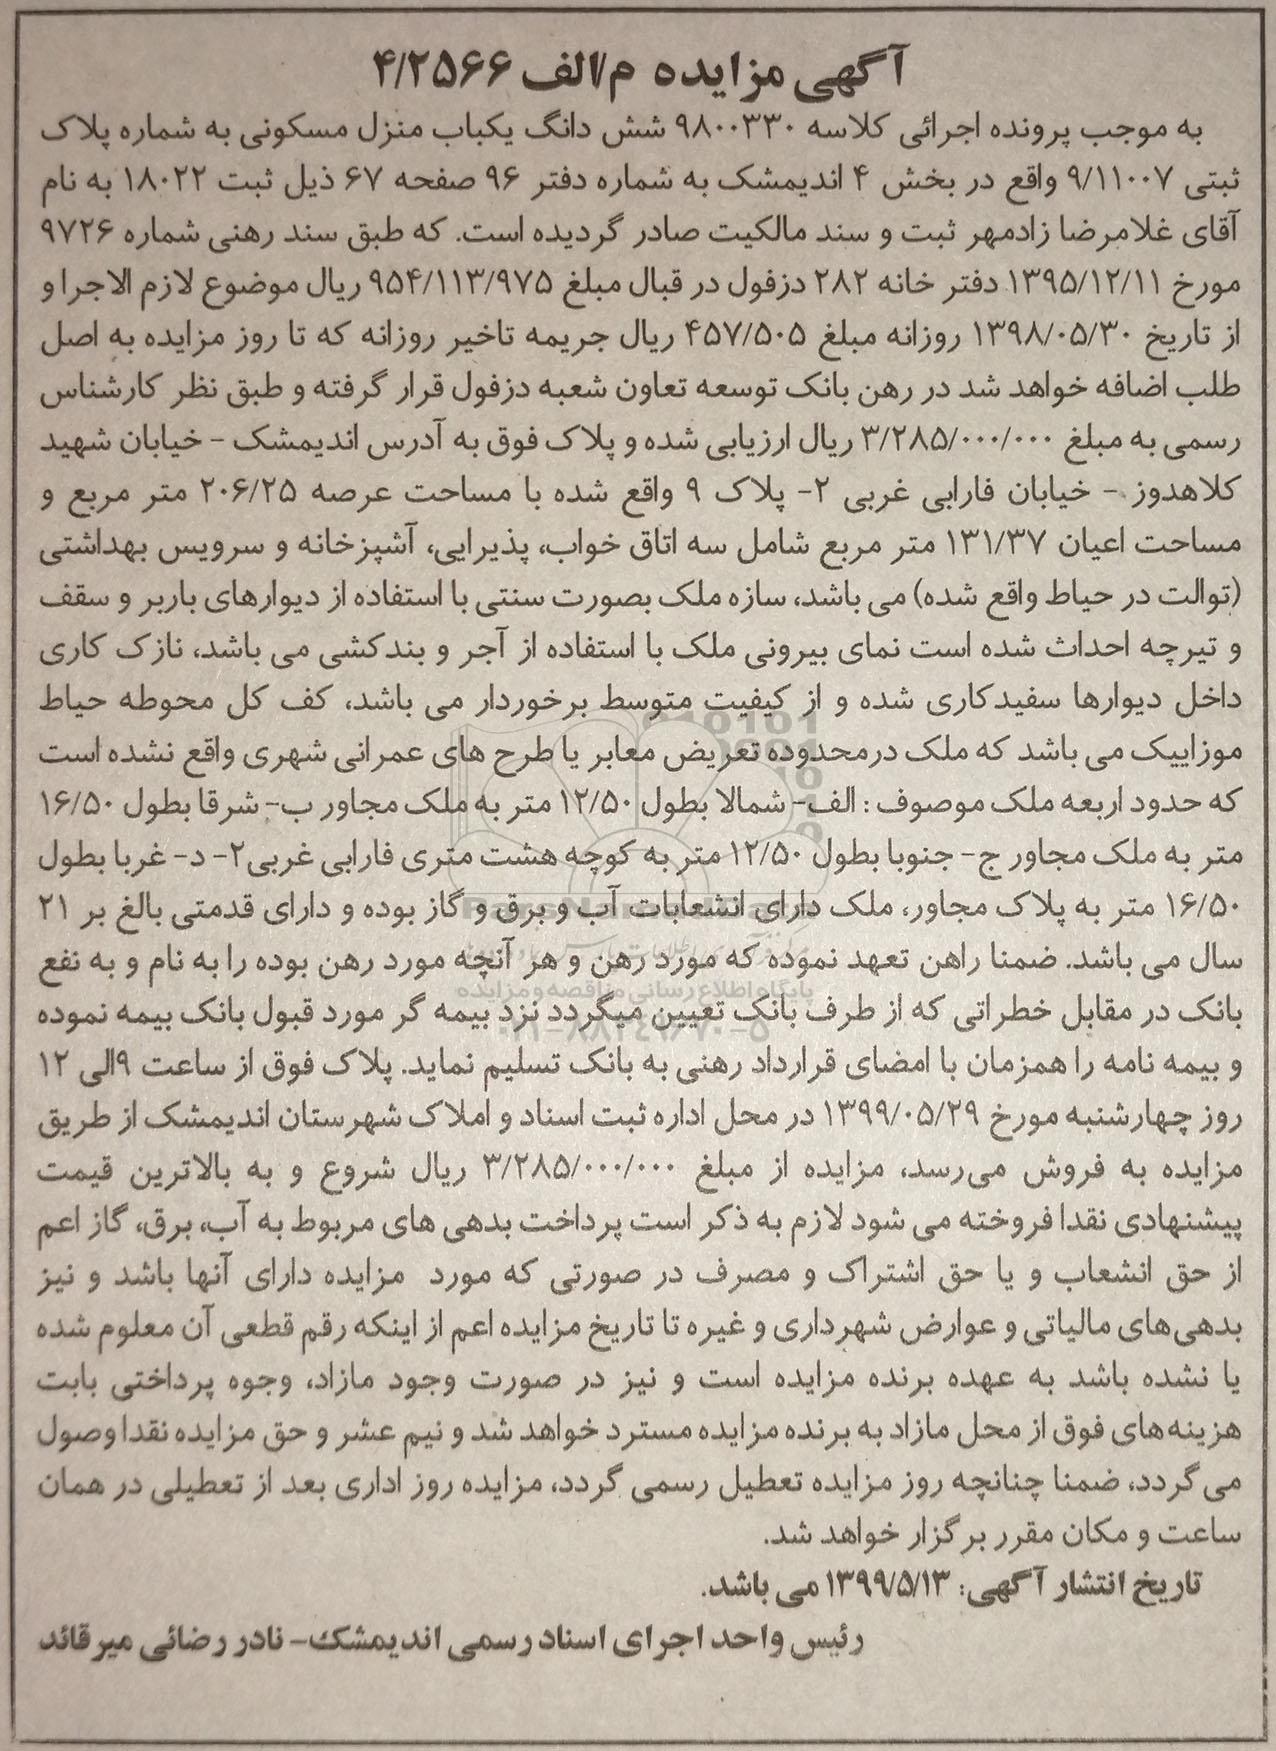 آگهی مزایده م/الف ۴/۲۵۶۶
به موجب پرونده اجرائی کلاسه ۹۸۰۰۳۳۰ شش دانگ یکباب منزل مسکونی به شماره پلاک
ثبتی ۹/۱۱۰۰۷ واقع در بخش ۴ اندیمشک به شماره دفتر ۹۶ صفحه ۶۷ ذیل ثبت ۱۸۰۲۲ به نام
آقای غلامرضا زادمهر ثبت و سند مالکیت صادر گردیده است. که طبق سند رهنی شماره ۹۷۲۶
مورخ ۱۳۹۵/۱۲/۱۱ دفتر خانه ۲۸۲ دزفول در قبال مبلغ ۹۵۴/۱۱۳/۹۷۵ ریال موضوع لازم الاجرا و
از تاریخ ۱۳۹۸/۰۵/۳۰ روزانه مبلغ ۴۵۷/۵۰۵ ریال جریمه تاخیر روزانه که تا روز مزایده به اصل
طلب اضافه خواهد شد در رهن بانک توسعه تعاون شعبه دزفول قرار گرفته و طبق نظر کارشناس
رسمی به مبلغ ۳/۲۸۵/۰۰۰/۰۰۰ ریال ارزیابی شده و پلاک فوق به آدرس اندیمشک - خیابان شهید
کلاهدوز - خیابان فارابی غربی ۲- پلاک ۹ واقع شده با مساحت عرصه ۲۰۶/۲۵ متر مربع و
مساحت اعیان ۱۳۱/۳۷ متر مربع شامل سه اتاق خواب، پذیرایی، آشپزخانه و سرویس بهداشتی
(توالت در حیاط واقع شده) می باشد، سازه ملک بصورت سنتی با استفاده از دیوارهای باربر و سقف
و تیرچه احداث شده است نمای بیرونی ملک با استفاده از آجر و بندکشی می باشد، نازک کاری
داخل دیوارها سفیدکاری شده و از کیفیت متوسط برخوردار می باشد، کف کل محوطه حیاط
موزاییک می باشد که ملک درمحدوده تعریض معابر یا طرح های عمرانی شهری واقع نشده است
که حدود اربعه ملک موصوف : الف- شمالا بطول ۱۲/۵۰ متر به ملک مجاور ب- شرقا بطول ۱۶/۵۰
متر به ملک مجاور ج- جنوبا بطول ۱۲/۵۰ متر به کوچه هشت متری فارابی غربی۲- د- غربا بطول
۱۶/۵۰ متر به پلاک مجاور، ملک دارای انشعابات آب و برق و گاز بوده و دارای قدمتی بالغ بر ۲۱
سال می باشد. ضمنا راهن تعهد نموده که مورد رهن و هر آنچه مورد رهن بوده را به نام و به نفع
پایگاه اطلاع رسانی مناقصه و مزایده
بانک در مقابل خطراتی که از طرف بانک تعیین میگردد نزد بیمه گر مورد قبول بانک بیمه نموده
۰۲۱-۸۸۳۴۹۶۷۰-۵
و بیمه نامه را همزمان با امضای قرارداد رهنی به بانک تسلیم نماید. پلاک فوق از ساعت ۹الی ۱۲
روز چهارشنبه مورخ ۱۳۹۹/۰۵/۲۹ در محل اداره ثبت اسناد و املاک شهرستان اندیمشک از طریق
مزایده به فروش می‌رسد، مزایده از مبلغ ۳/۲۸۵/۰۰۰/۰۰۰ ریال شروع و به بالاترین قیمت
پیشنهادی نقدا فروخته می شود لازم به ذکر است پرداخت بدهی های مربوط به آب، برق، گاز اعم
از حق انشعاب و یا حق اشتراک و مصرف در صورتی که مورد مزایده دارای آنها باشد و نیز
بدهی‌های مالیاتی و عوارض شهرداری و غیره تا تاریخ مزایده اعم از اینکه رقم قطعی آن معلوم شده
یا نشده باشد به عهده برنده مزایده است و نیز در صورت وجود مازاد، وجوه پرداختی بابت
هزینه‌های فوق از محل مازاد به برنده مزایده مسترد خواهد شد و نیم عشر و حق مزایده نقدا وصول
می گردد، ضمنا چنانچه روز مزایده تعطیل رسمی گردد، مزایده روز اداری بعد از تعطیلی در همان
ساعت و مکان مقرر برگزار خواهد شد.
تاریخ انتشار آگهی: ۱۳۹۹/۵/۱۳ می باشد.
رئیس واحد اجرای اسناد رسمی اندیمشک- نادر رضائی میرقائد